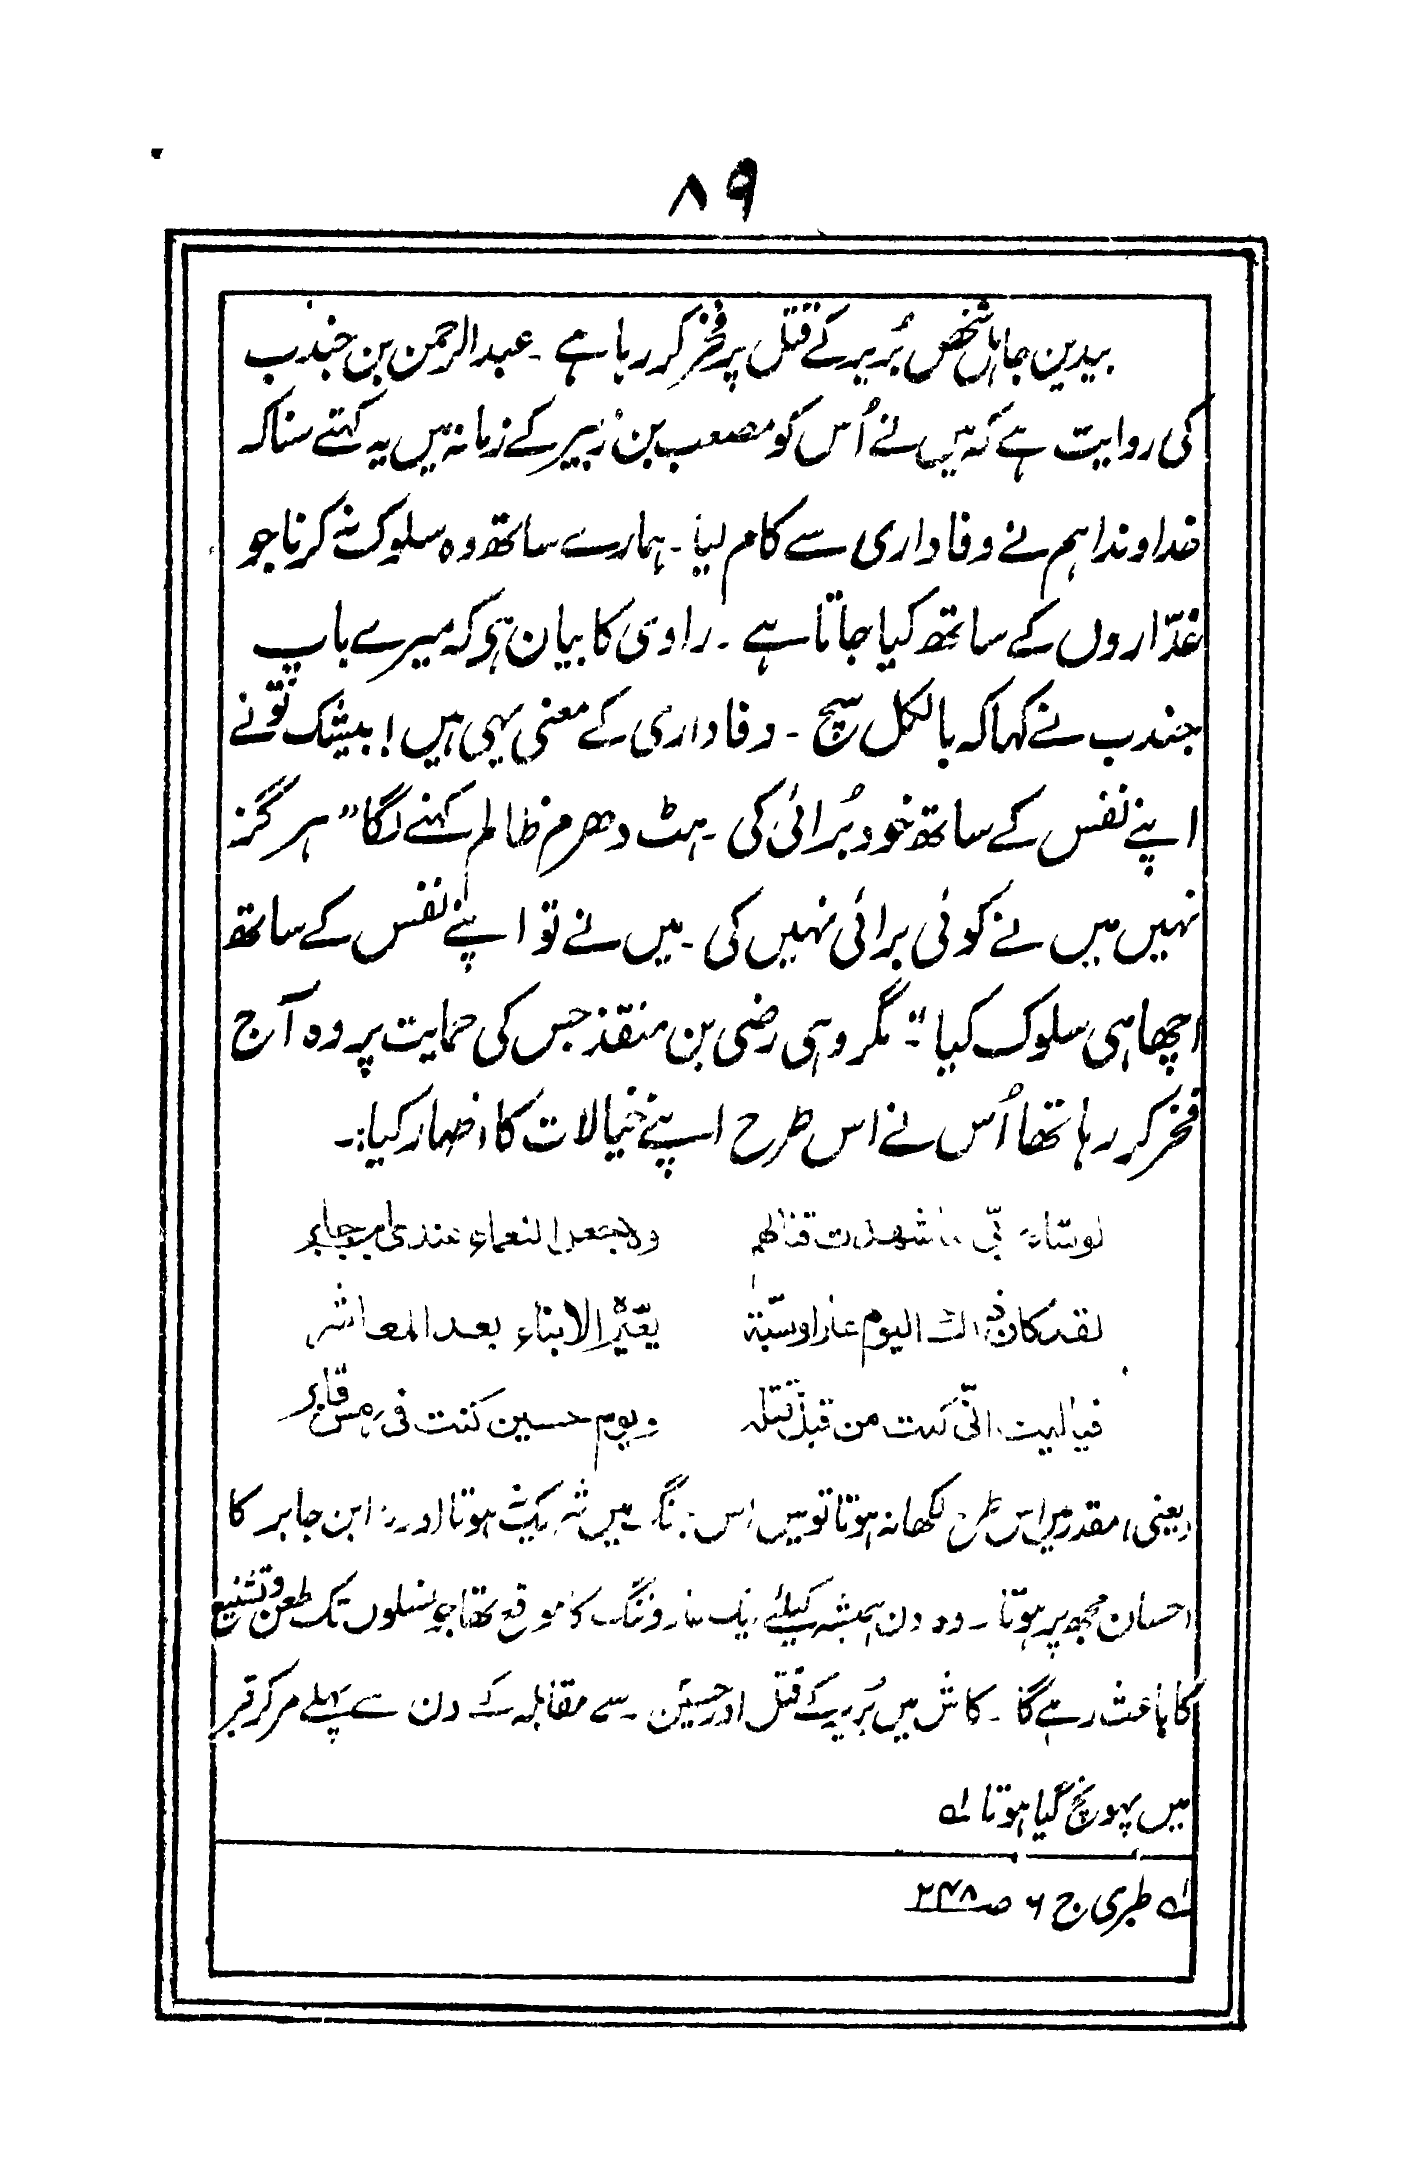 ۸۹
بیدین جاہل شخص بُریر کے قتل پر فخر کر رہا ہے ۔ عبدالرحمن بن جندب
کی روایت ہے کہ میں نے اُس کو مصعب بن زبیر کے زمانہ میں یہ کہتے سنا کہ
خداوندا ہم نے وفاداری سے کام لیا ۔ ہمارے ساتھ وہ سلوک نہ کرنا جو
غدّاروں کے ساتھ کیا جاتا ہے ۔ راوی کا بیان ہی کہ میرے باپ
جندب نے کہا کہ بالکل سچ ۔ وفاداری کے معنی یہی ہیں ! بیشک تو نے
اپنے نفس کے ساتھ خود بُرائی کی ۔ ہٹ دھرم ظالم کہنے لگا " ہرگز
نہیں میں نے کوئی برائی نہیں کی ۔ میں نے تو اپنے نفس کے ساتھ
اچھا ہی سلوک کیا " ۔ مگر وہی رضی بن منقذ جس کی حمایت پر وہ آج
فخر کر رہا تھا اُس نے اس طرح اپنے خیالات کا اظہار کیا :۔
لو شاء ربّی ما شهدت قتالهم ولا جعل النعماء عندی ابن جابر
لقد کان ذاك الیوم عارا وسبّة یعیّره الابناء بعد المعاشر
فیالیت انّی کنت من قبل قتله ویوم حسین کنت فی رمس قابر
(یعنی) مقدر میں اس طرح لکھا نہ ہوتا تو میں اس جنگ میں شریک ہوتا اور نہ ابن جابر کا
احسان مجھ پر ہوتا ۔ وہ دن ہمیشہ کیلئے ایک عار و ننگ کا موقع تھا جو نسلوں تک طعن و تشنیع
کا باعث رہے گا ۔ کاش میں بُریر کے قتل اور حسینؑ سے مقابلہ کے دن سے پہلے مر کر قبر
میں پہونچ گیا ہوتا لہ
لہ طبری ج ۶ صـ ۲۴۸